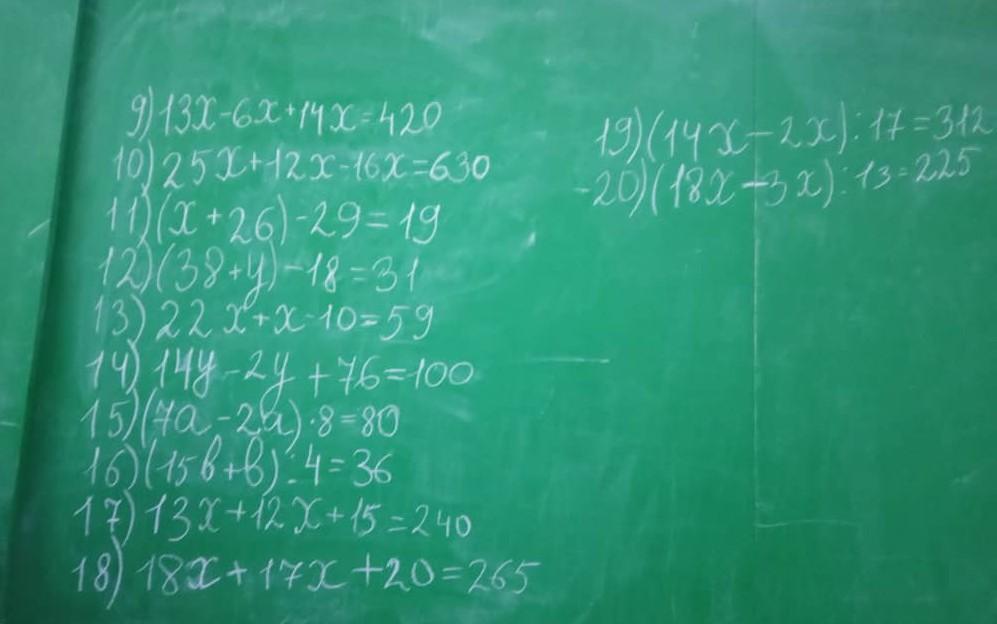 9) 13x-6x+14x=420
10) 25x+12x-16x=630
11) (x+26)-29=19
12) (38+y)-18=31
13) 22x+x-10=59
14) 14y-2y+76=100
15) (7a-2a)·8=80
16) (15b+b):4=36
17) 13x+12x+15=240
18) 18x+17x+20=265
19) (14x-2x):17=312
20) (18x-3x):13=225